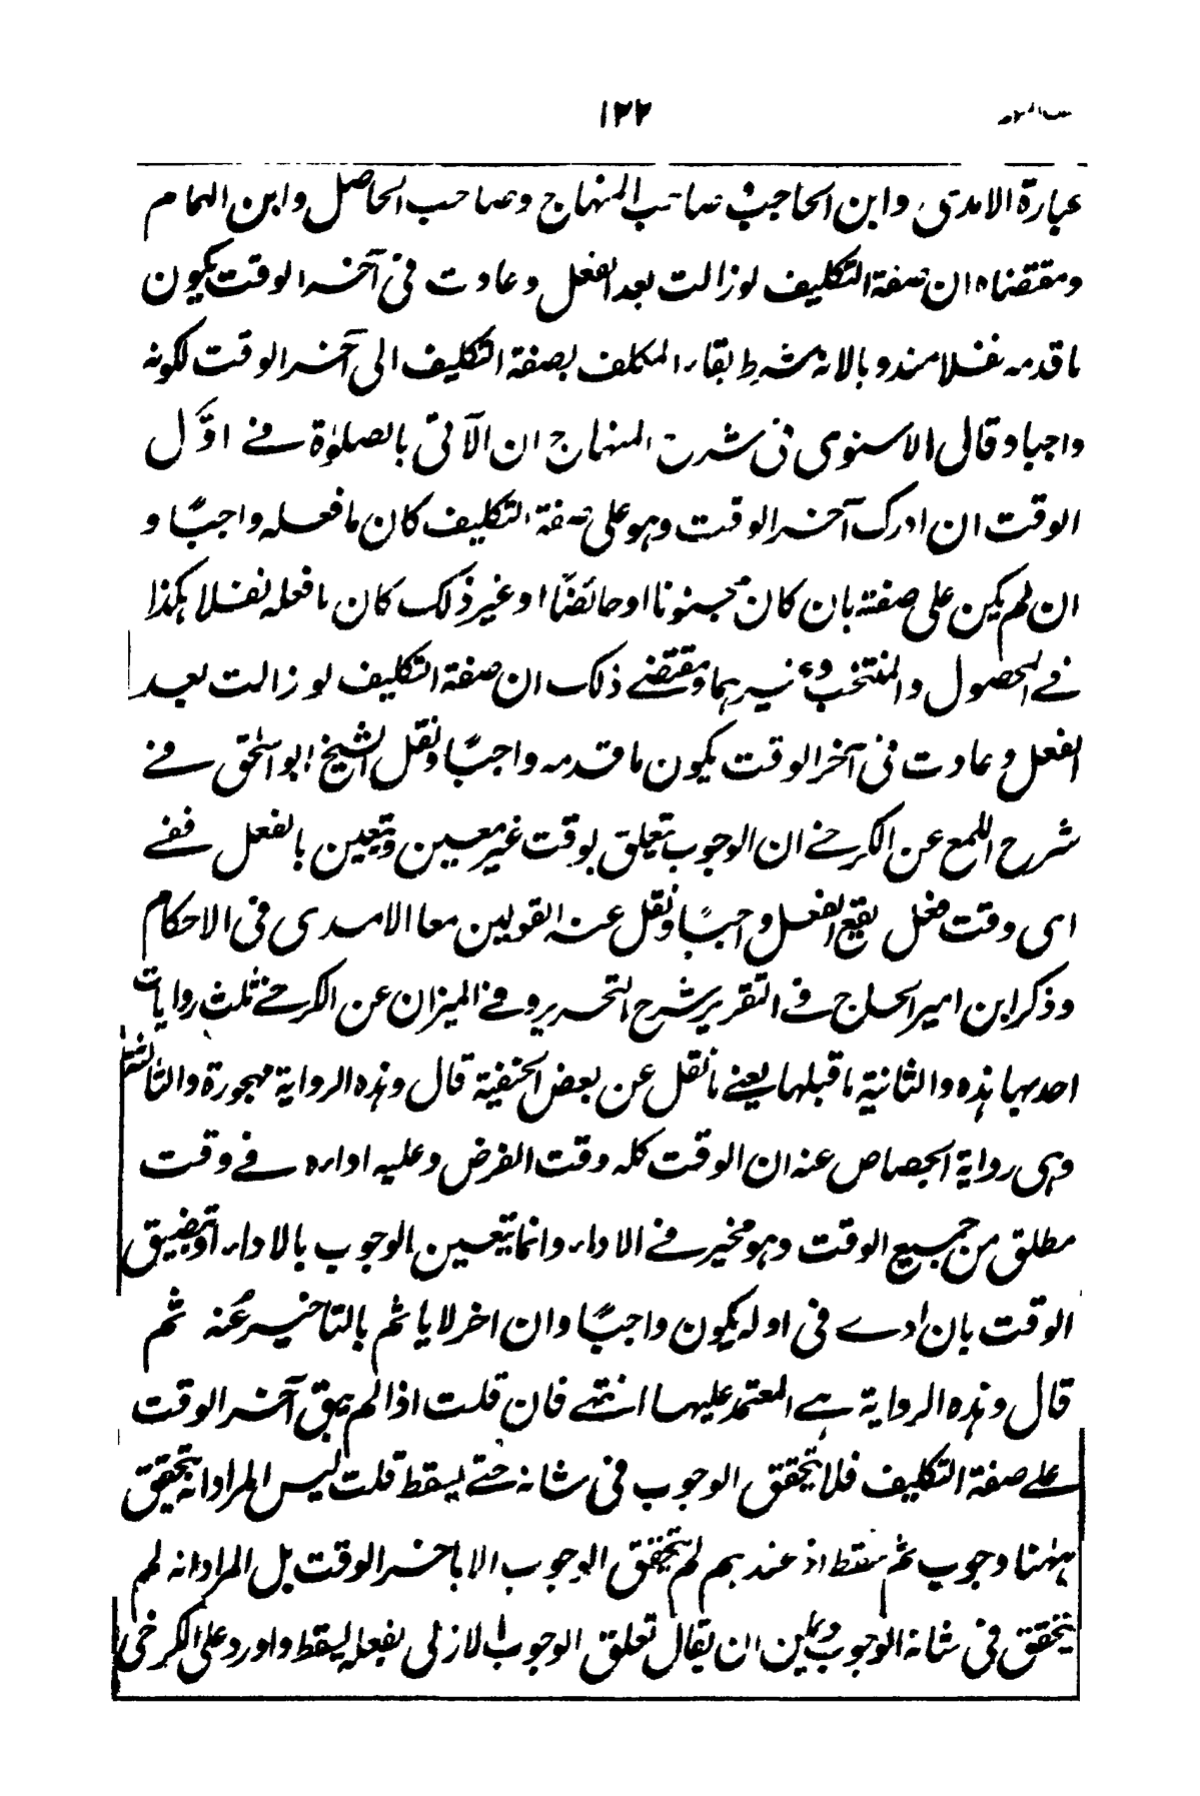 ١٢٢
عبارة الامدى وابن الحاجب وصاحب المنهاج وصاحب الحاصل وابن الهمام
ومقتضاه ان صفة التكليف لو زالت بعد الفعل وعادت فى آخر الوقت يكون
ما قدمه نفلا مندوبا لانه شرط بقاء المكلف بصفة التكليف الى آخر الوقت لكونه
واجبا وقال الاسنوى فى شرح المنهاج ان الآتى بالصلوٰة فے اوَّل
الوقت ان ادرك آخر الوقت وهو على صفة التكليف كان ما فعله واجبًا و
ان لم يكن على صفته بان كان مجنونا او حائضًا او غير ذٰلك كان ما فعله نفلا هكذا
فے المحصول والمنتخب وغيرهما ومقتضے ذلك ان صفة التكليف لو زالت بعد
الفعل وعادت فى آخر الوقت يكون ما قدمه واجبًا ونقل الشيخ ابو اسحٰق فے
شرح اللمع عن الكرخے ان الوجوب يتعلق بوقت غير معين ويتعين بالفعل ففے
اى وقت فعل يقع الفعل واجبًا ونقل عنه القولين معا الامدى فى الاحكام
وذكر ابن امير الحاج فے التقرير شرح التحرير وفے الميزان عن الكرخے ثلٰث روايات
احدٮها هذه والثانية ما قبلها يعنے ما نقل عن بعض الحنفية قال وهذه الرواية مهجورة والثالثة
وهى رواية الجصاص عنه ان الوقت كله وقت الفرض وعليه اداءه فے وقت
مطلق من جميع الوقت وهو مخير فے الاداء وانما يتعين الوجوب بالاداء او تضييق
الوقت بان ادے فى اوله يكون واجبًا وان اخر لا ياثم بالتاخير عنه ثم
قال وهذه الرواية هے المعتمد عليها انتهے فان قلت اذا لم يبق آخر الوقت
علے صفة التكليف فلا يتحقق الوجوب فى شانه حتے يسقط قلت ليس المراد انه يتحقق
ههنا وجوب ثم سقط اذ عندهم لم يتحقق الوجوب الا باخر الوقت بل المراد انه لم
يتحقق فى شانه الوجوب ويمكن ان يقال تعلق الوجوب الازلى بفعله ليسقط واورد على الكرخى